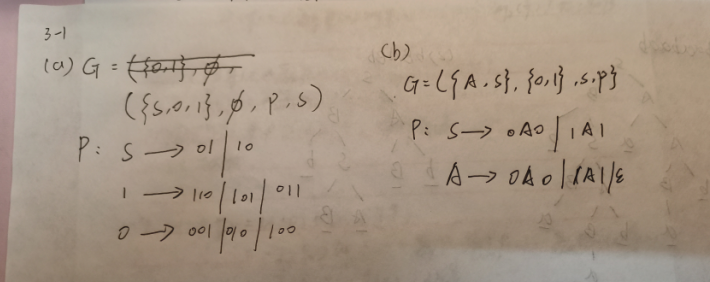 3-1
(a) G = ({0,1}, ∅,
({S,0,1}, ∅, P, S)
P: S → 01 | 10
1 → 110 | 101 | 011
0 → 001 | 010 | 100
(b)
G=({A,S}, {0,1}, S, P}
P: S → 0A0 | 1A1
A → 0A0 | 1A1 | ε